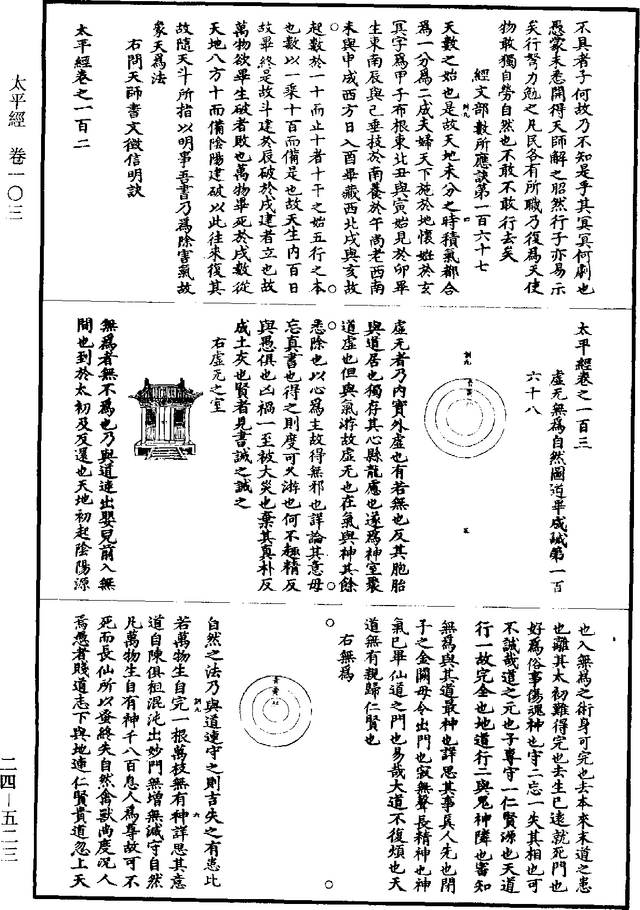 太平經 卷一〇三
二四—五二三
不具者子何故乃不知是乎其冥冥何劇也
愚蒙未悉開得天師解之昭然行子亦易示
矣行努力勉之凡民各有所職乃復為天使
物敢獨自勞自然也不敢不敢行去矣
經文部數所應訣第一百六十七
天數之始也是故天地未分之時積氣都合
為一分為二成夫婦天下施於地懷妊於玄
冥字為甲子布根東北丑與寅始見於卯畢
生東南辰與巳垂枝於南養於午向老西南
未與申成西方日入酉畢藏西北戌與亥故
起數於一十而止十者十干之始五行之本
也數以一乘十百而備是也故天生內百日
故畢終是故斗建於辰破於戌建者立也故
萬物欲畢生破者敗也萬物畢死於戌數從
天地八方十而備陰陽建破以此往來復其
故隨天斗所指以明事吾書乃為除害氣故
象天為法
右問天師書文徵信明訣
太平經卷之一百二
太平經卷之一百三
虛无無為自然圖道畢成誡第一百
六十八
虛无者乃內實外虛也有若無也反其胞胎
與道居也獨存其心縣龍慮也遂為神室聚
道虛也但與氣游故虛无也在氣與神其餘
悉除也以心為主故得無邪也詳論其意毋
忘真書也得之則度可久游也何不趣精反
與愚俱也凶禍一至被大災也棄其真朴反
成土灰也賢者見書誡之誡之
右虛无之室
無為者無不為也乃與道連出嬰兒前入無
間也到於太初乃反還也天地初起陰陽源
也入無為之術身可完也去本來末道之患
也離其太初難得完也去生已遠就死門也
好為俗事傷魂神也守二忘一失其相也可
不誡哉道之元也子專守一仁賢源也天道
行一故完全也地道行二與鬼神隣也審知
無為與其道最神也詳思其事真人先也閉
子之金闕毋令出門也寂無聲長精神也神
氣已畢仙道之門也易哉大道不復煩也天
道無有親歸仁賢也
右無為
自然之法乃與道連守之則吉失之有患比
若萬物生自完一根萬枝無有神詳思其意
道自陳俱祖混沌出妙門無增無減守自然
凡萬物生自有神千八百息人為尊故可不
死而長仙所以蚤終失自然禽獸尚度況人
焉愚者賤道志下與地連仁賢貴道忽上天